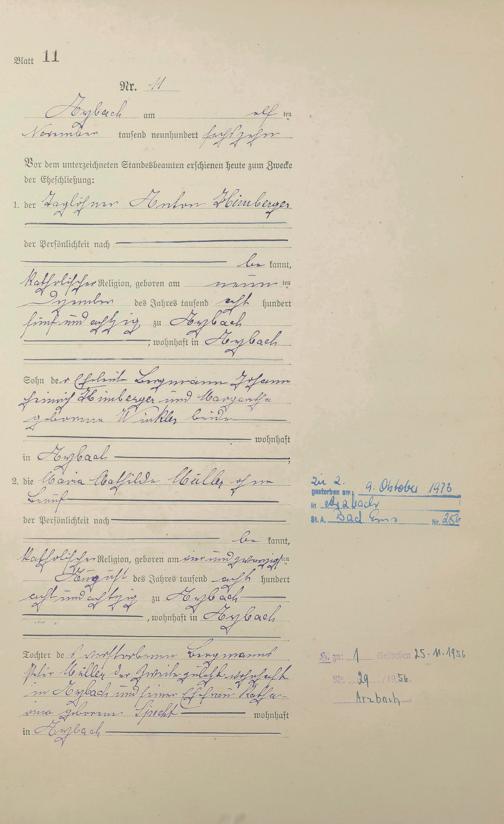 Blatt 11
Nr. 11
Arzbach am elf ten
November tausend neunhundert sechszehn
Vor dem unterzeichneten Standesbeamten erschienen heute zum Zwecke
der Eheschließung:
1. der Taglöhner Anton Himberger
der Persönlichkeit nach
be kannt,
katholischer Religion, geboren am neun ten
Dezember des Jahres tausend acht hundert
fünf und achtzig zu Arzbach
, wohnhaft in Arzbach
Sohn der Eheleute Bergmann Johann
Heinrich Himberger und Margaretha
geborene Winkler beide
wohnhaft
in Arzbach
2. die Maria Mathilde Müller ohne
Beruf
der Persönlichkeit nach
be kannt,
katholischer Religion, geboren am vier und zwanzig ten
August des Jahres tausend acht hundert
acht und achtzig zu Arzbach
, wohnhaft in Arzbach
Tochter des verstorbenen Bergmanns
Müller der zuletzt wohnhaft
in Arzbach und seiner Ehefrau Katha-
rina geborene Specht wohnhaft
in Arzbach
Zu 2.
gestorben am 9. Oktober 1973
in Arzbach
St. A. Bad Ems Nr.
zu 1 25.11.1956
Nr. 29 /1956
Arzbach